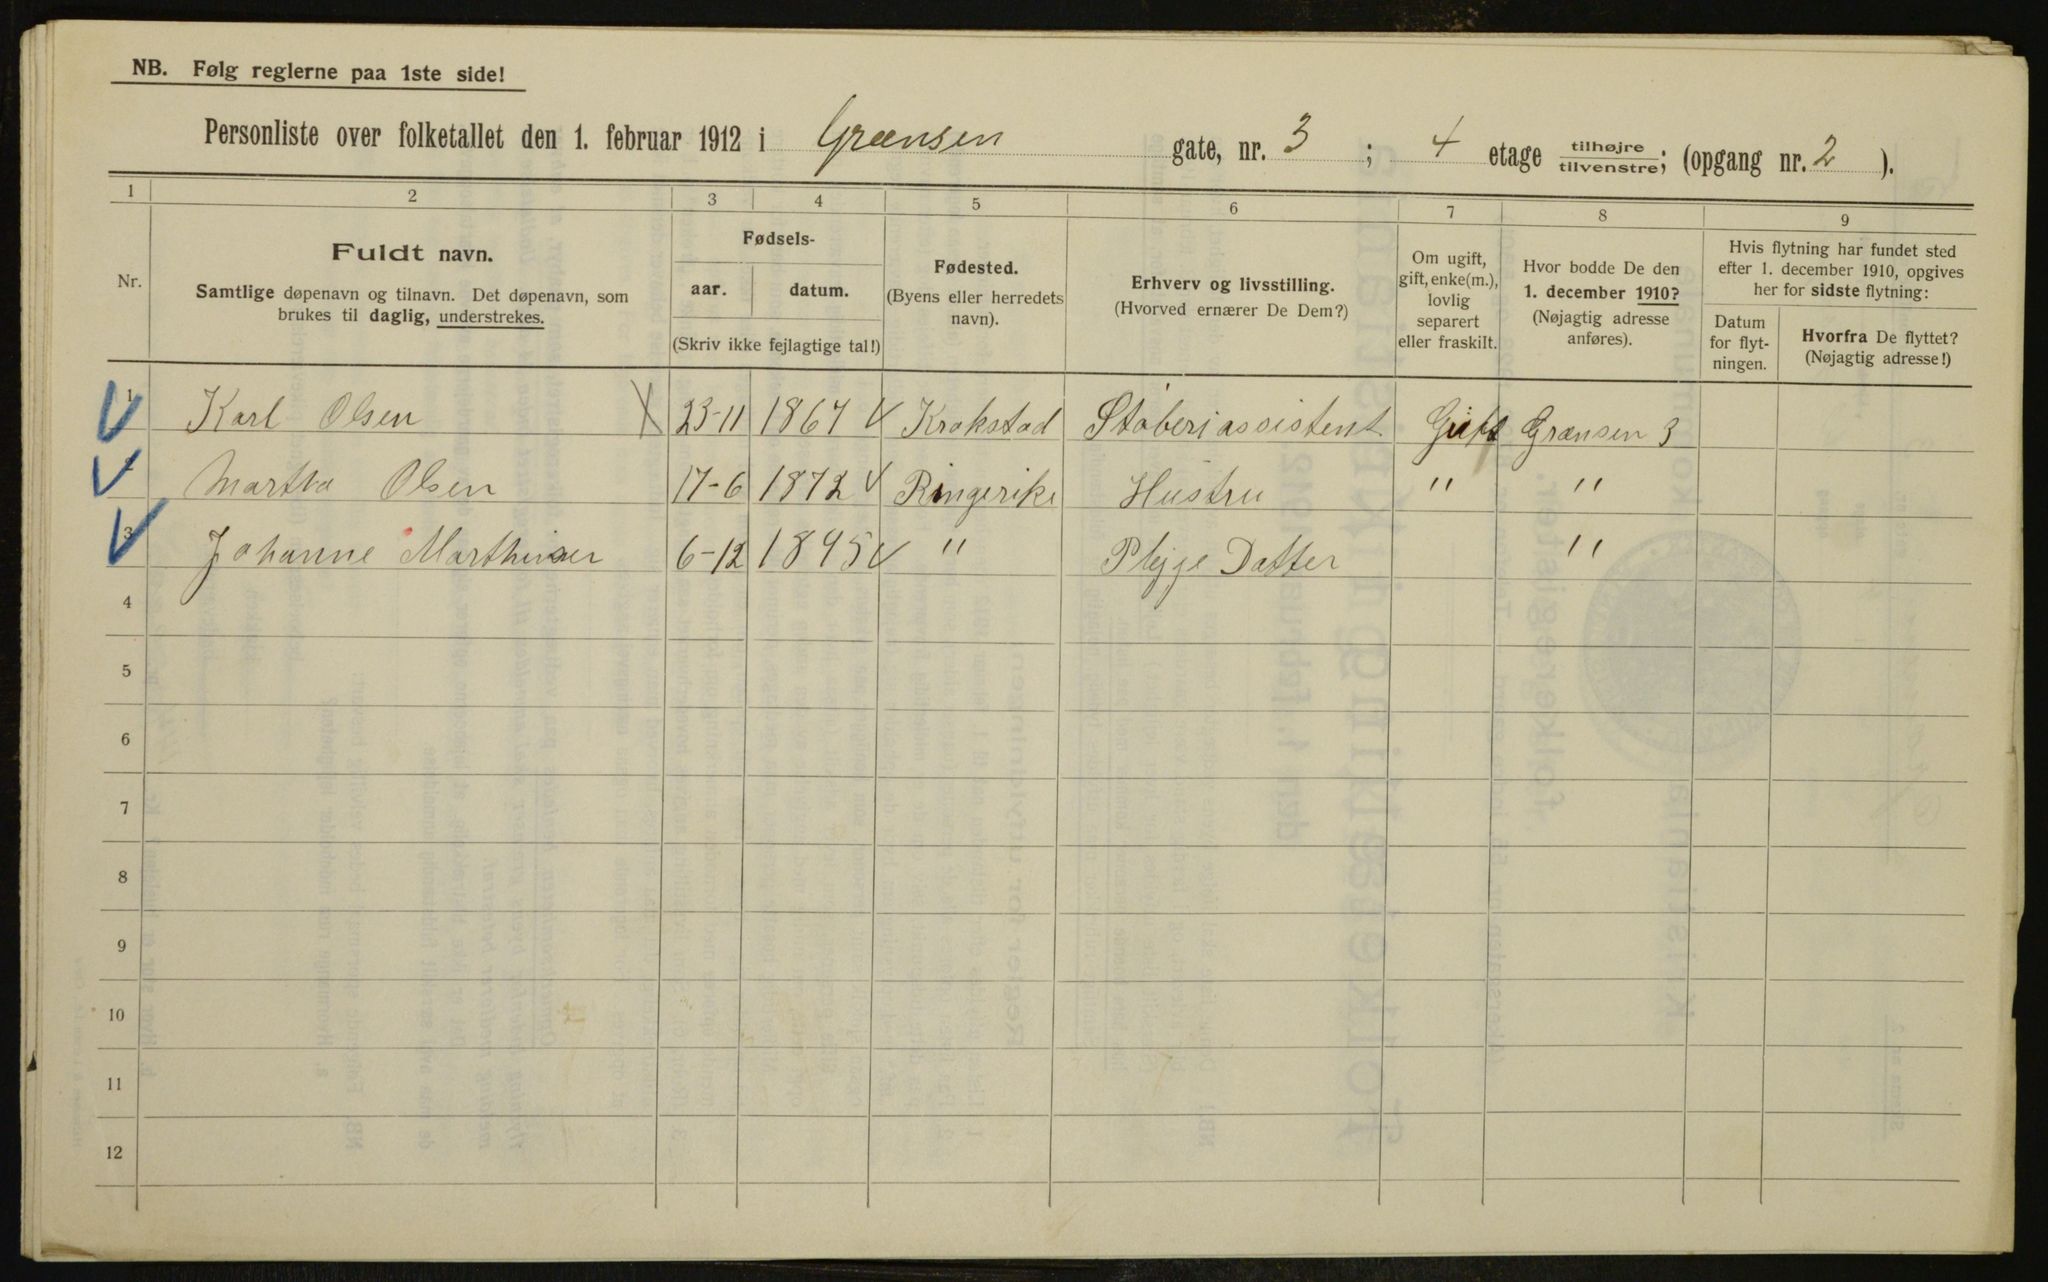 NB. Følg reglerne paa 1ste side!
Personliste over folketallet den 1. februar 1912 i Grænsen gate, nr. 3 ; 4 etage tilhøjre tilvenstre; (opgang nr. 2 ).
1 2 3 4 5 6 7 8 9
Nr.
Fuldt navn.
Samtlige døpenavn og tilnavn. Det døpenavn, som
brukes til daglig, understrekes.
Fødsels-
aar. datum.
(Skriv ikke fejlagtige tal!)
Fødested.
(Byens eller herredets
navn).
Erhverv og livsstilling.
(Hvorved ernærer De Dem?)
Om ugift,
gift, enke(m.),
lovlig
separert
eller fraskilt.
Hvor bodde De den
1. december 1910?
(Nøjagtig adresse
anføres).
Hvis flytning har fundet sted
efter 1. december 1910, opgives
her for sidste flytning:
Datum
for flyt-
ningen.
Hvorfra De flyttet?
(Nøjagtig adresse!)
1 Karl Olsen 23-11 1867 Krokstad Støberiassistent Gift Grænsen 3
2 Martha Olsen 17-6 1872 Ringerike Hustru " "
3 Johanne Marthinsen 6-12 1895 " Plejge Datter "
4
5
6
7
8
9
10
11
12